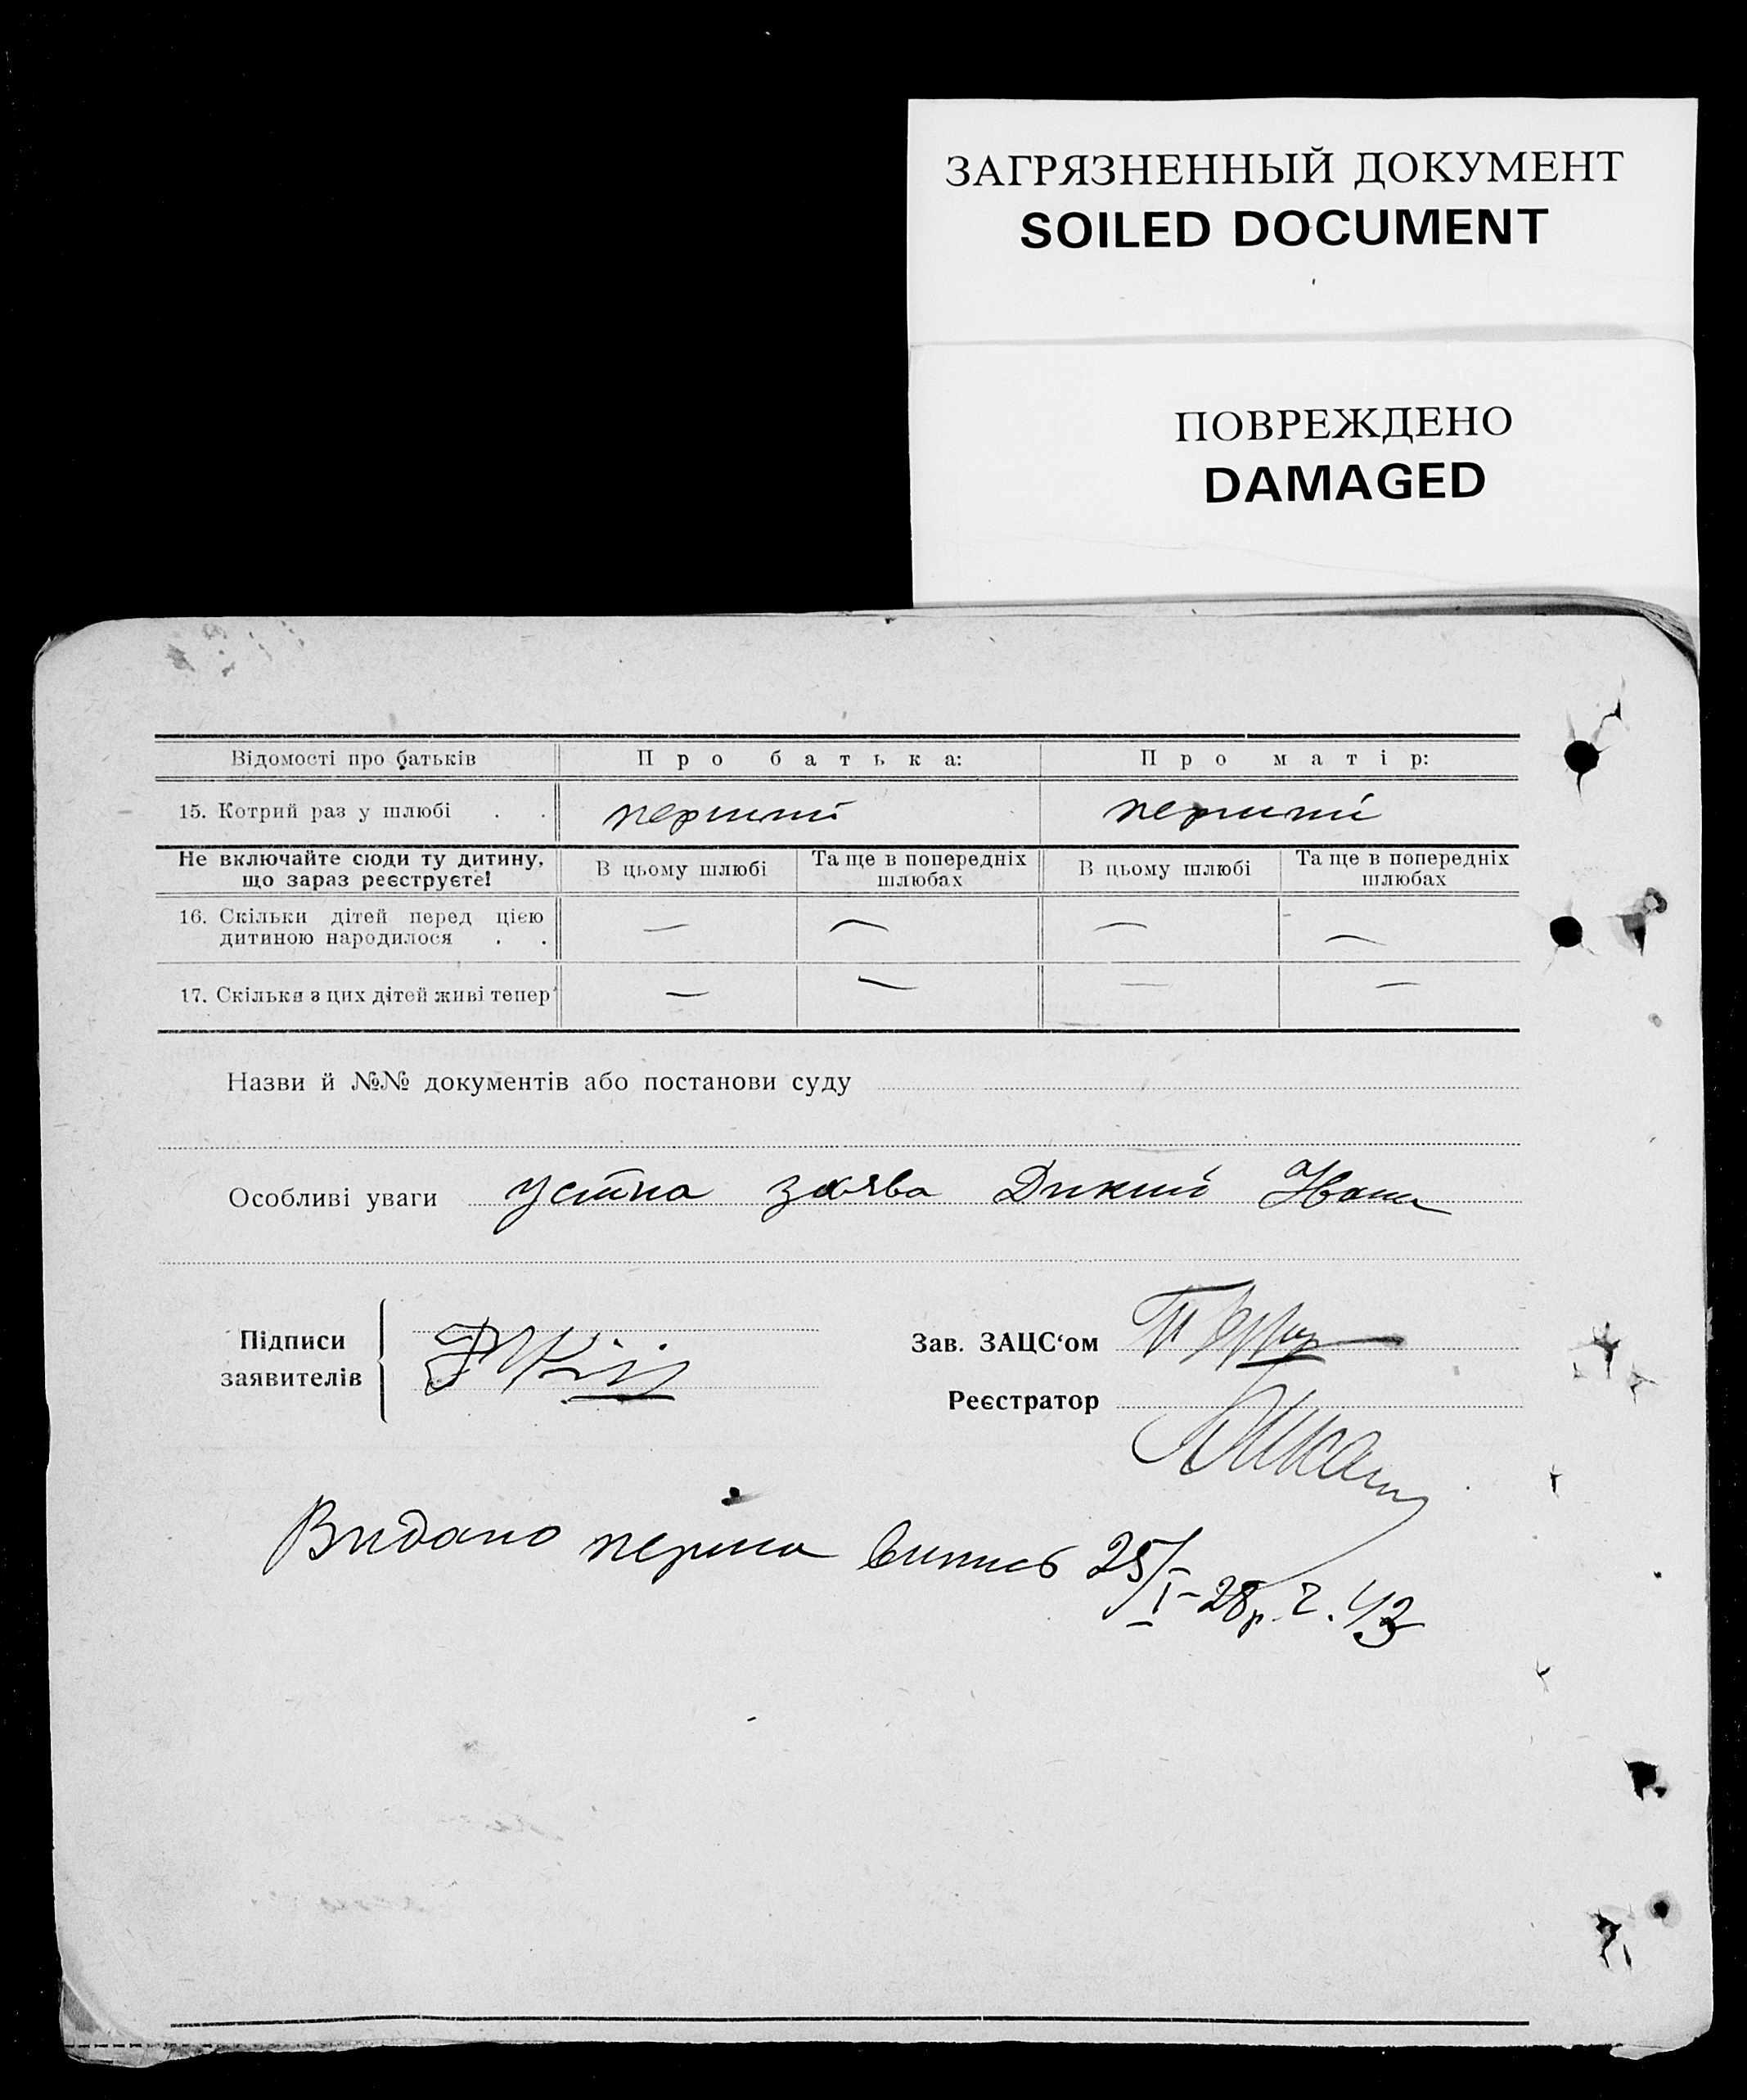 ЗАГРЯЗНЕННЫЙ ДОКУМЕНТ
SOILED DOCUMENT
ПОВРЕЖДЕНО
DAMAGED
Відомості про батьків Про батька: Про матір:
15. Котрий раз у шлюбі . . перший перший
Не включайте сюди ту дитину, що зараз реєструєте! В цьому шлюбі Та ще в попередніх шлюбах В цьому шлюбі Та ще в попередніх шлюбах
16. Скільки дітей перед цією
дитиною народилося . . — — — —
17. Скільки з цих дітей живі тепер — — — —
Назви й №№ документів або постанови суду
Особливі уваги устна заява Дикий Иван
Підписи
заявителів
Зав. ЗАЦС‘ом
Реєстратор
Видано перша випись 25/I-28р. Ч. 43